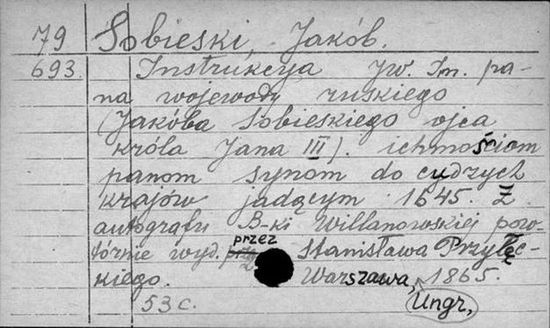 79 Sobieski, Jakób.
693. Instrukcya Jw. Im. pa-
na wojewody ruskiego
(Jakóba Sobieskiego ojca
króla Jana III). ichmościom
panom synom do cudzych
krajów jadącym 1645. Z
autografu B-ki Willanowskiej pow-
tórnie wyd. przez Stanisława Przyłęc-
kiego. Warszawa, 1865.
53 c. Ungr,